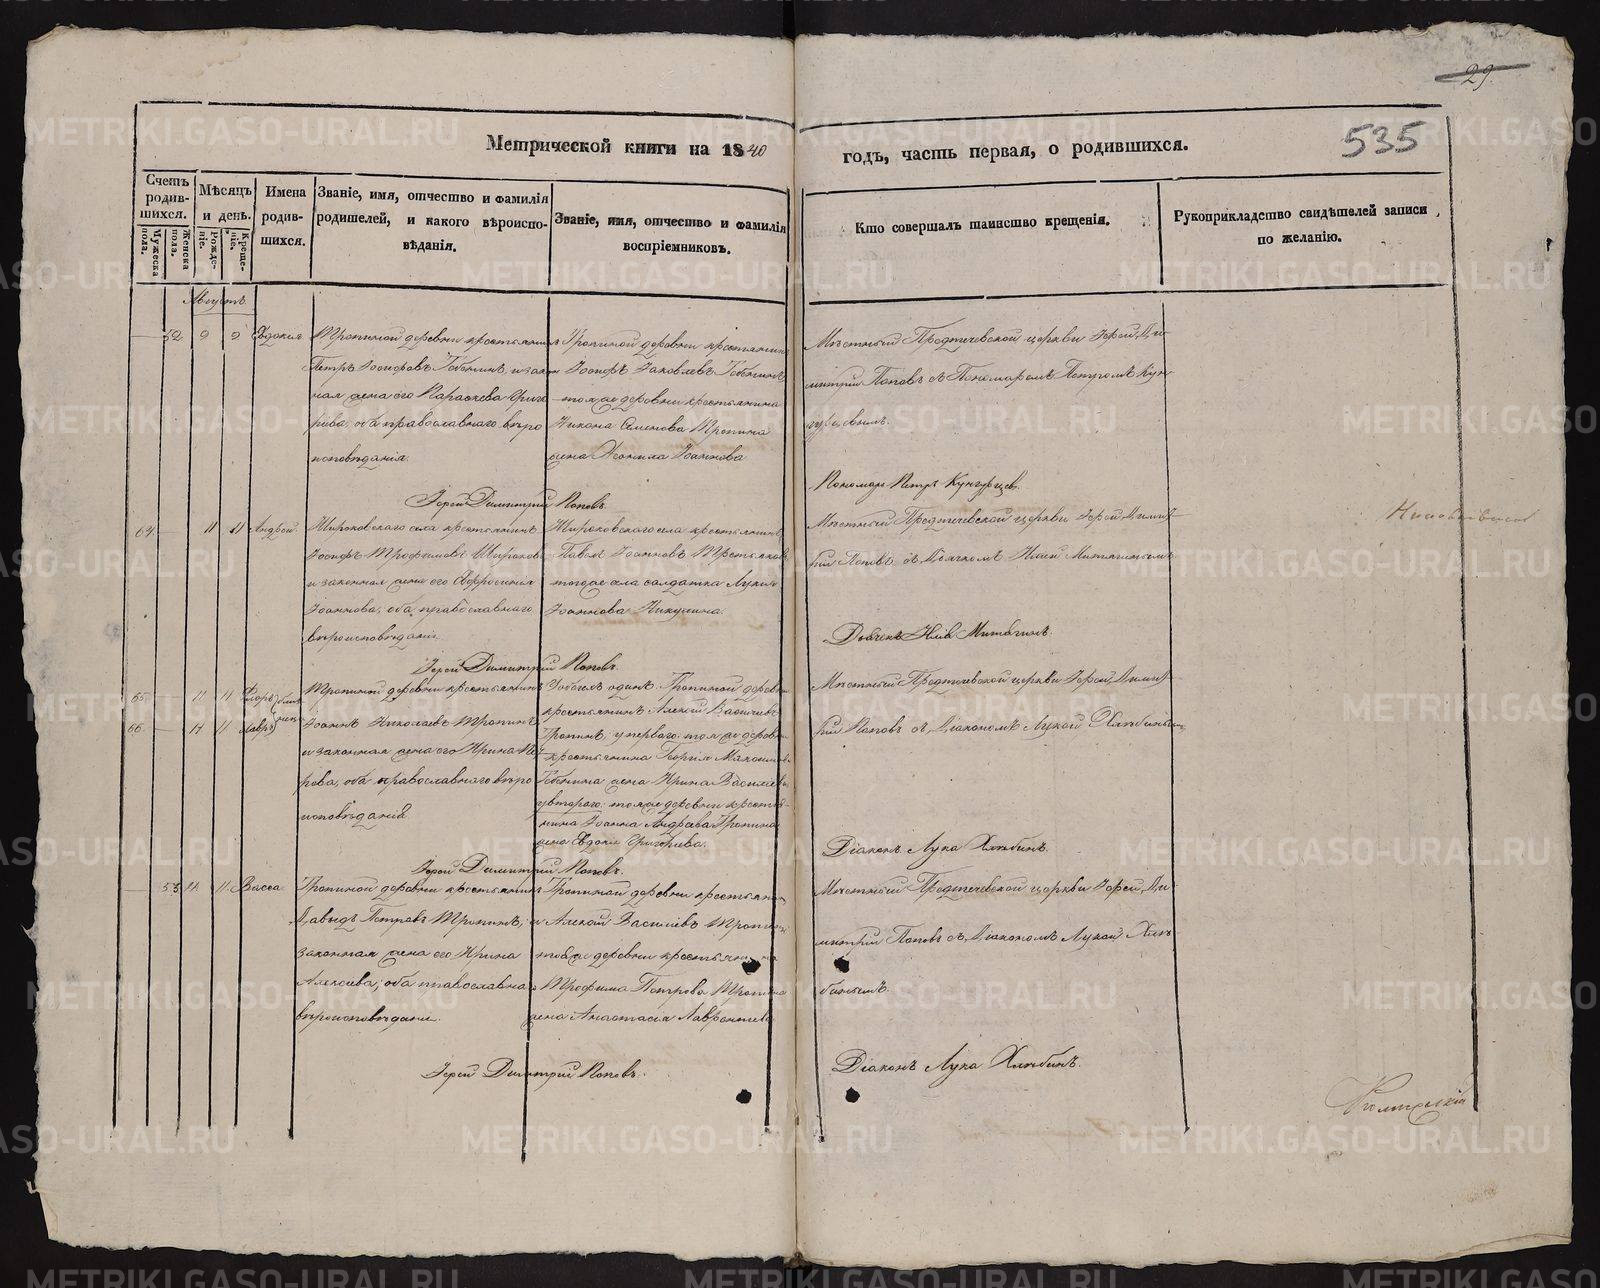 29
535
Метрической книги на 1840
годъ, часть первая, о родившихся.
Счетъ родив-шихся.
Мужеска пола.
Женска пола.
Мѣсяцъ и день.
Рожде-ніе.
Креще-ніе.
Имена родив-шихся.
Званіе, имя, отчество и фамилія
родителей, и какого вѣроиспо-
вѣданія.
Званіе, имя, отчество и фамилія
воспріемниковъ.
Кто совершалъ таинство крещенія.
Рукоприкладство свидѣтелей записи
по желанію.
Августъ
52 9 9 Евдокия
Тропиной деревни крестьянинъ
Петръ Іосифовъ Гобенинъ, и закон
ная жена его Параскева Григо
рьева, оба православнаго вѣро
исповѣданія.
Тропиной деревни крестьянинъ
Іосифъ Іаковлевъ
той же деревни крестьянина
Никона Семенова Тропина
жена Неонила Іоаннова
Мѣстный Предтечевской церкви Іерей Ди
митрій Поповъ съ Пономаремъ Петромъ Кун
гурцовымъ.
Пономарь Петръ Кунгурцев
Іерей Димитрій Поповъ.
64 11 11 Андрей
Широковскаго села крестьянинъ
Іосифъ Трофимовъ Широковъ
и законная жена его Евфросиния
Іоаннова, оба православнаго
вѣроисповѣданія.
Широковскаго села крестьянинъ
Павелъ Іоанновъ Третьяковъ
того же села солдатка Лукия
Іоаннова Никулина.
Мѣстный Предтечевской церкви Іерей Димит
рій Поповъ съ Дьячкомъ
Дьячекъ
Іерей Димитрій Поповъ.
65 11 11 Флоръ
66 11 11 Лавръ
близнецы
Тропиной деревни крестьянинъ
Іоаннъ Николаевъ Тропинъ
и законная жена его Ирина Пет
рова, оба православнаго вѣро
исповѣданія
у обоихъ одинъ Тропиной деревни
крестьянинъ Алексей Василіевъ
Тропинъ, у перваго: той же деревни
крестьянина Георгия Максимова
Гобенина жена Ирина Василиева
у втораго: той же деревни крестья
нина Іоанна Андреева Тропина
жена Евдокия Григориева.
Мѣстный Предтечевской церкви Іерей Димит
рій Поповъ съ Діакономъ Лукой Хлѣбинымъ
Діаконъ Лука Хлѣбинъ.
Іерей Димитрій Поповъ.
53 11 11 Васса
Тропиной деревни крестьянинъ
Давыдъ Петровъ Тропинъ, и
законная жена его Ирина
Алексеева, оба православнаго
вѣроисповѣдания.
Тропиной деревни крестьянинъ
Алексей Василиевъ Тропинъ
той же деревни крестьянина
Трофима Петрова Тропина
жена Анастасия Лаврентиева
Мѣстный Предтечевской церкви Іерей Ди
митрій Поповъ съ Діакономъ Лукой Хлѣ
бинымъ.
Іерей Димитрій Поповъ.
Діаконъ Лука Хлѣбинъ.
METRIKI.GASO-URAL.RU